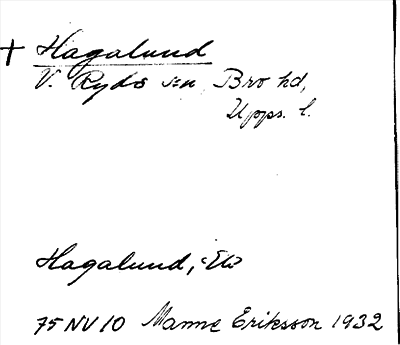 + Hagalund
V. Ryds sn Bro hd,
Upps. l.
Hagalund,
75 NV 10 Manne Eriksson 1932